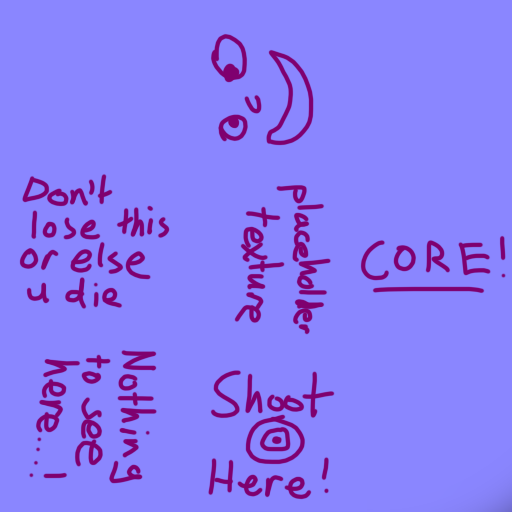 Don't
lose this
or else
u die
placeholder
texture
CORE!
Nothing
to see
here...!
Shoot
Here!